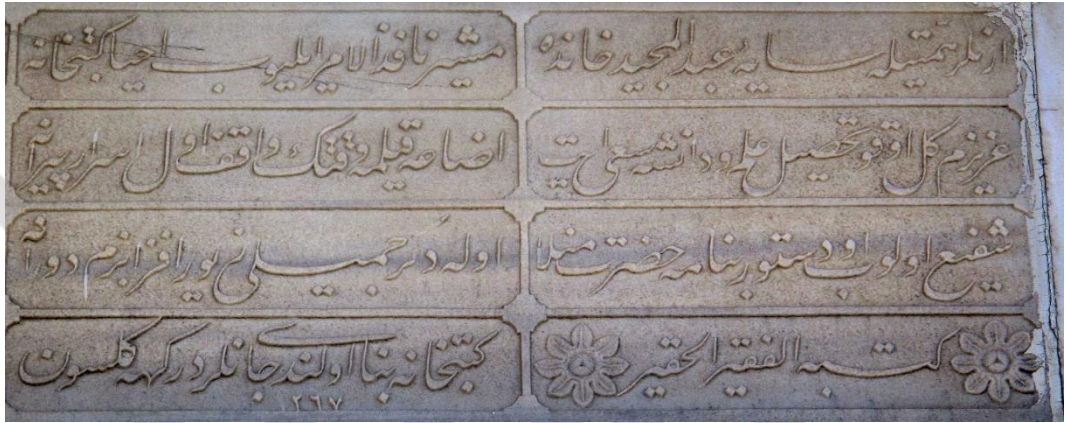 ارنلر همتیله سایهٔ عبد المجید خانده مشیر نافذ الامر ایلیوب احیا کتبخانه
عزیزم کل اوقو تحصیل علم و دانشه سعی ایت اضاعه قیلمه وقتک واقف اول اسرار پیرانه
شفیع اولوب او دستور بنامه حضرت منلا اوله ذکر جمیلی نور افزا بزم دورانه
کتبه الفقیر الحقیر کتبخانه بنا اولندی جانلر درکهه کلسون
١٢٦٧